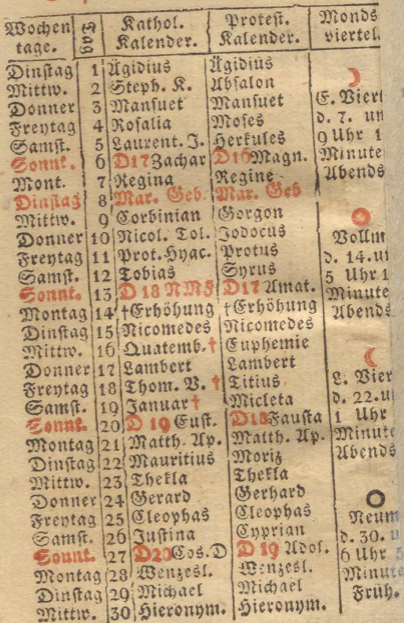 Wochen tage. Tag Kathol. Kalender. Protest. Kalender. Monds viertel.
Dinstag 1 Ägidius Ägidius
Mittw. 2 Steph. K. Absalon
Donner 3 Mansuet Mansuet E. Viert
Freytag 4 Rosalia Moses d. 7. un
Samst. 5 Laurent. J. Herkules 9 Uhr 1
Sonnt. 6 D17 Zachar D16 Magn. Minute
Mont. 7 Regina Regine Abends
Dinstag 8 Mar. Geb Mar. Geb
Mittw. 9 Corbinian Gorgon
Donner 10 Nicol. Tol. Jodocus Vollm
Freytag 11 Prot. Hyac. Protus d. 14. u
Samst. 12 Tobias Syrus 5 Uhr 1
Sonnt. 13 D 18 N M F D17 Amat. Minute
Montag 14 †Erhöhung †Erhöhung Abends
Dinstag 15 Nicomedes Nicomedes
Mittw. 16 Quatemb.† Euphemie
Donner 17 Lambert Lambert L. Vier
Freytag 18 Thom. V. † Titius d. 22. u
Samst. 19 Januar † Micleta 1 Uhr
Sonnt. 20 D 19 Eust. D18 Fausta Minute
Montag 21 Matth. Ap. Matth. Ap. Abends
Dinstag 22 Mauritius Moriz
Mittw. 23 Thekla Thekla
Donner 24 Gerard Gerhard
Freytag 25 Cleophas Cleophas Neum
Samst. 26 Justina Cyprian d. 30. u
Sonnt. 27 D20 Cos. D D 19 Adol. 6 Uhr
Montag 28 Wenzesl. Wenzesl. Minute
Dinstag 29 Michael Michael Früh.
Mittw. 30 Hieronym. Hieronym.